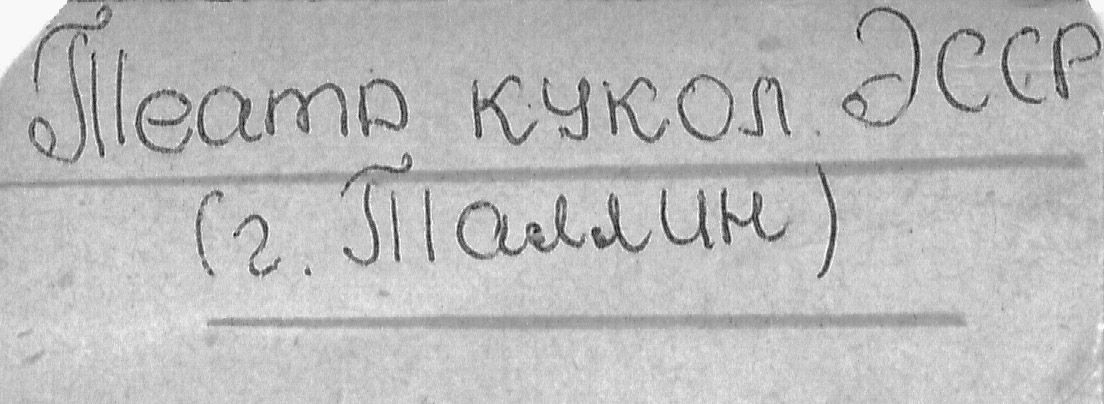 Театр кукол ЭССР
(г. Таллин)